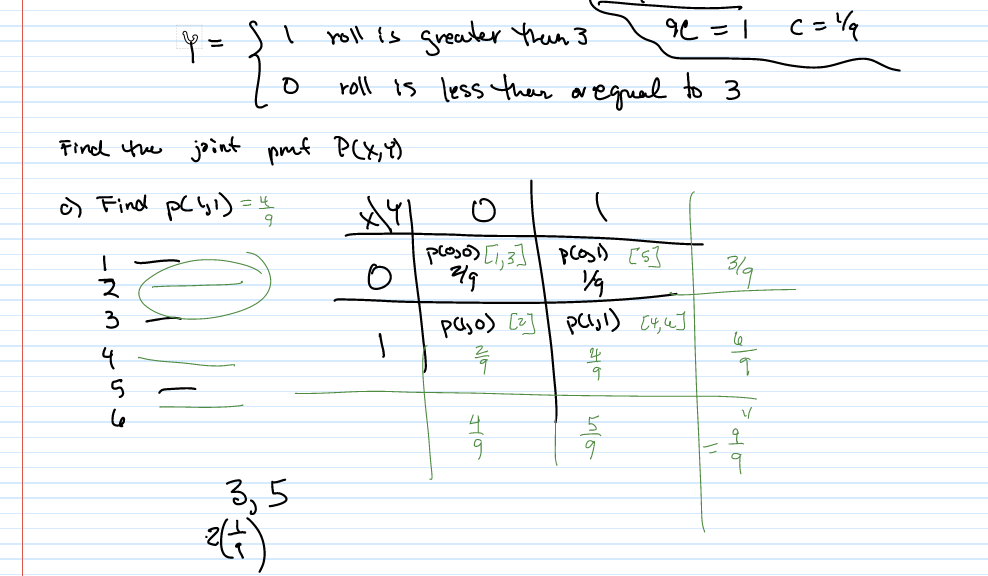 Y = { 1 roll is greater than 3
0 roll is less than or equal to 3
9C = 1 C = 1/9
Find the joint pmf P(X,Y)
c) Find p(1,1) = 4/9
X\Y 0 1
0 p(0,0) [1,3] 2/9 p(0,1) [5] 1/9 3/9
1 p(1,0) [2] 2/9 p(1,1) [4,6] 4/9 6/9
4/9 5/9 = 9/9
1
2
3
4
5
6
3, 5
2(1/9)